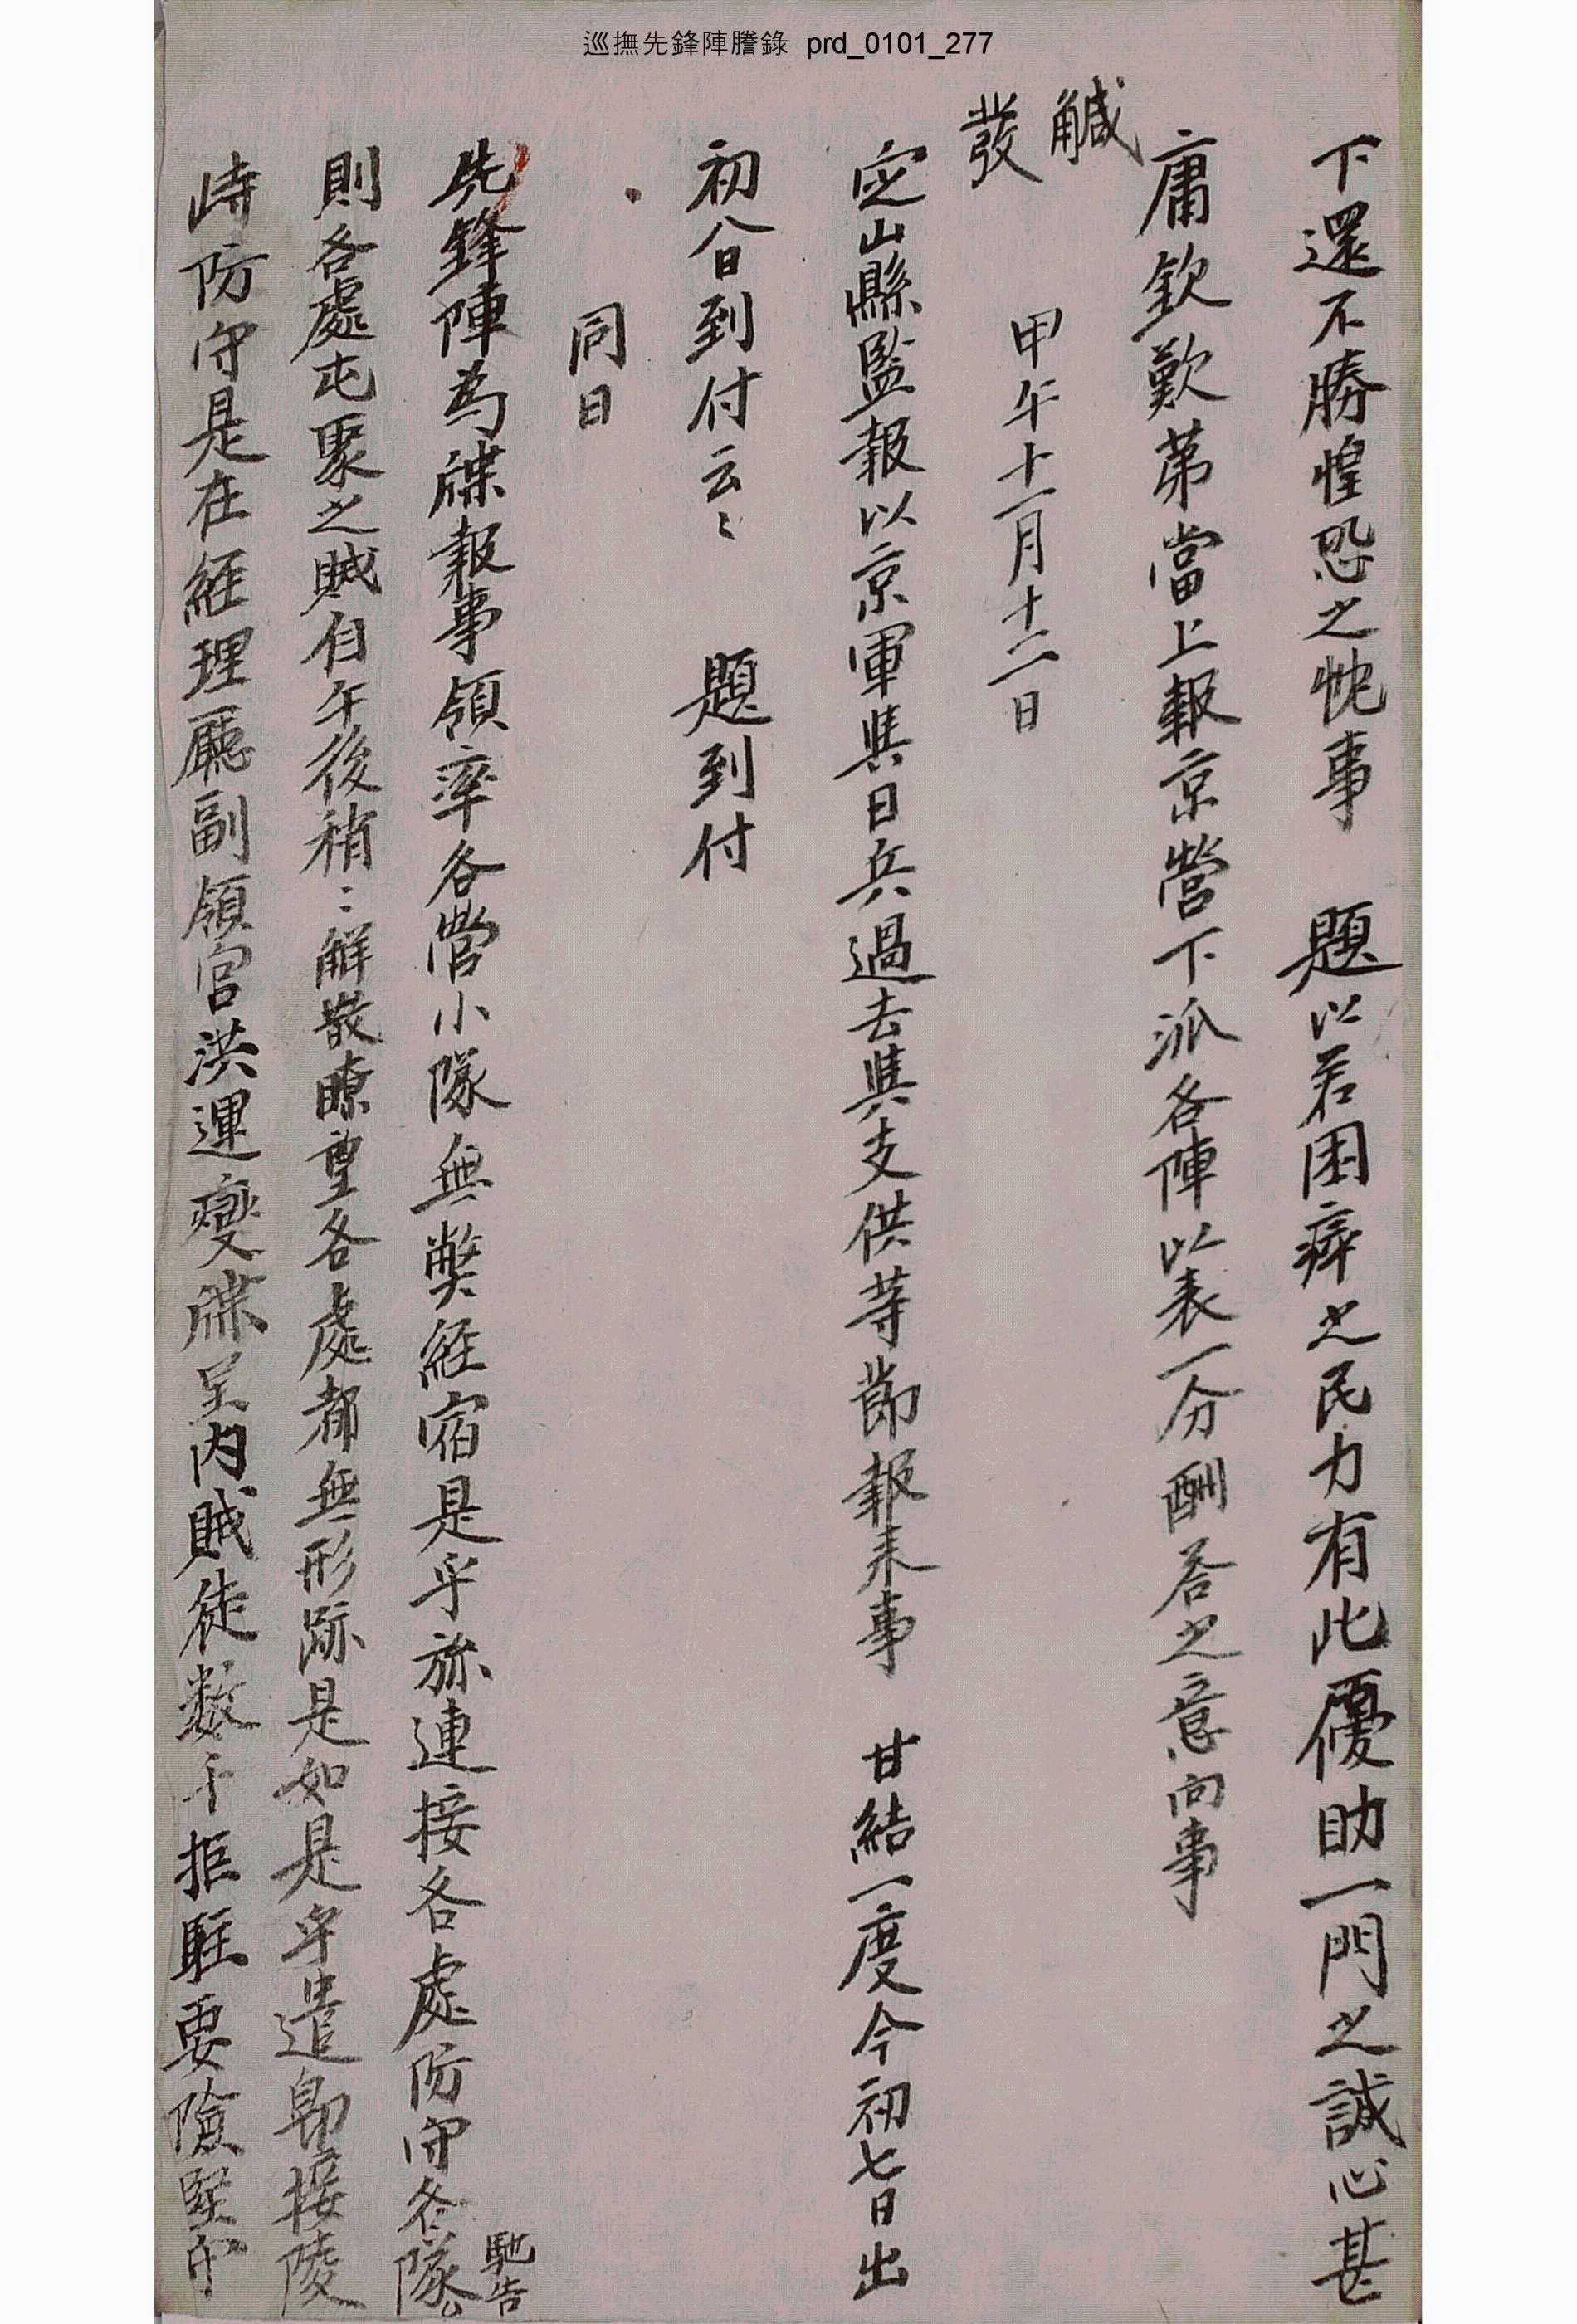 巡撫先鋒陣謄錄 prd_0101_277
下還不勝惶恐之忱事 題以若困瘁之民力有此優助一門之誠心甚
庸欽歎第當上報京營下派各陣以表一分酬答之意向事
緘
發
甲午十一月十二日
定山縣監報以京軍與日兵過去與支供等節報来事 甘結一度今初七日出
初八日到付云〻 題到付
同日
先鋒陣為牒報事領率各營小隊無弊經宿是乎旀連接各處防守各隊
馳告
則各處屯聚之賊自午後稍〻解散瞭望各處都無形跡是如是乎遣卽接陵
峙防守是在經理廳副領官洪運燮牒呈內賊徒数千拒駐要險堅守